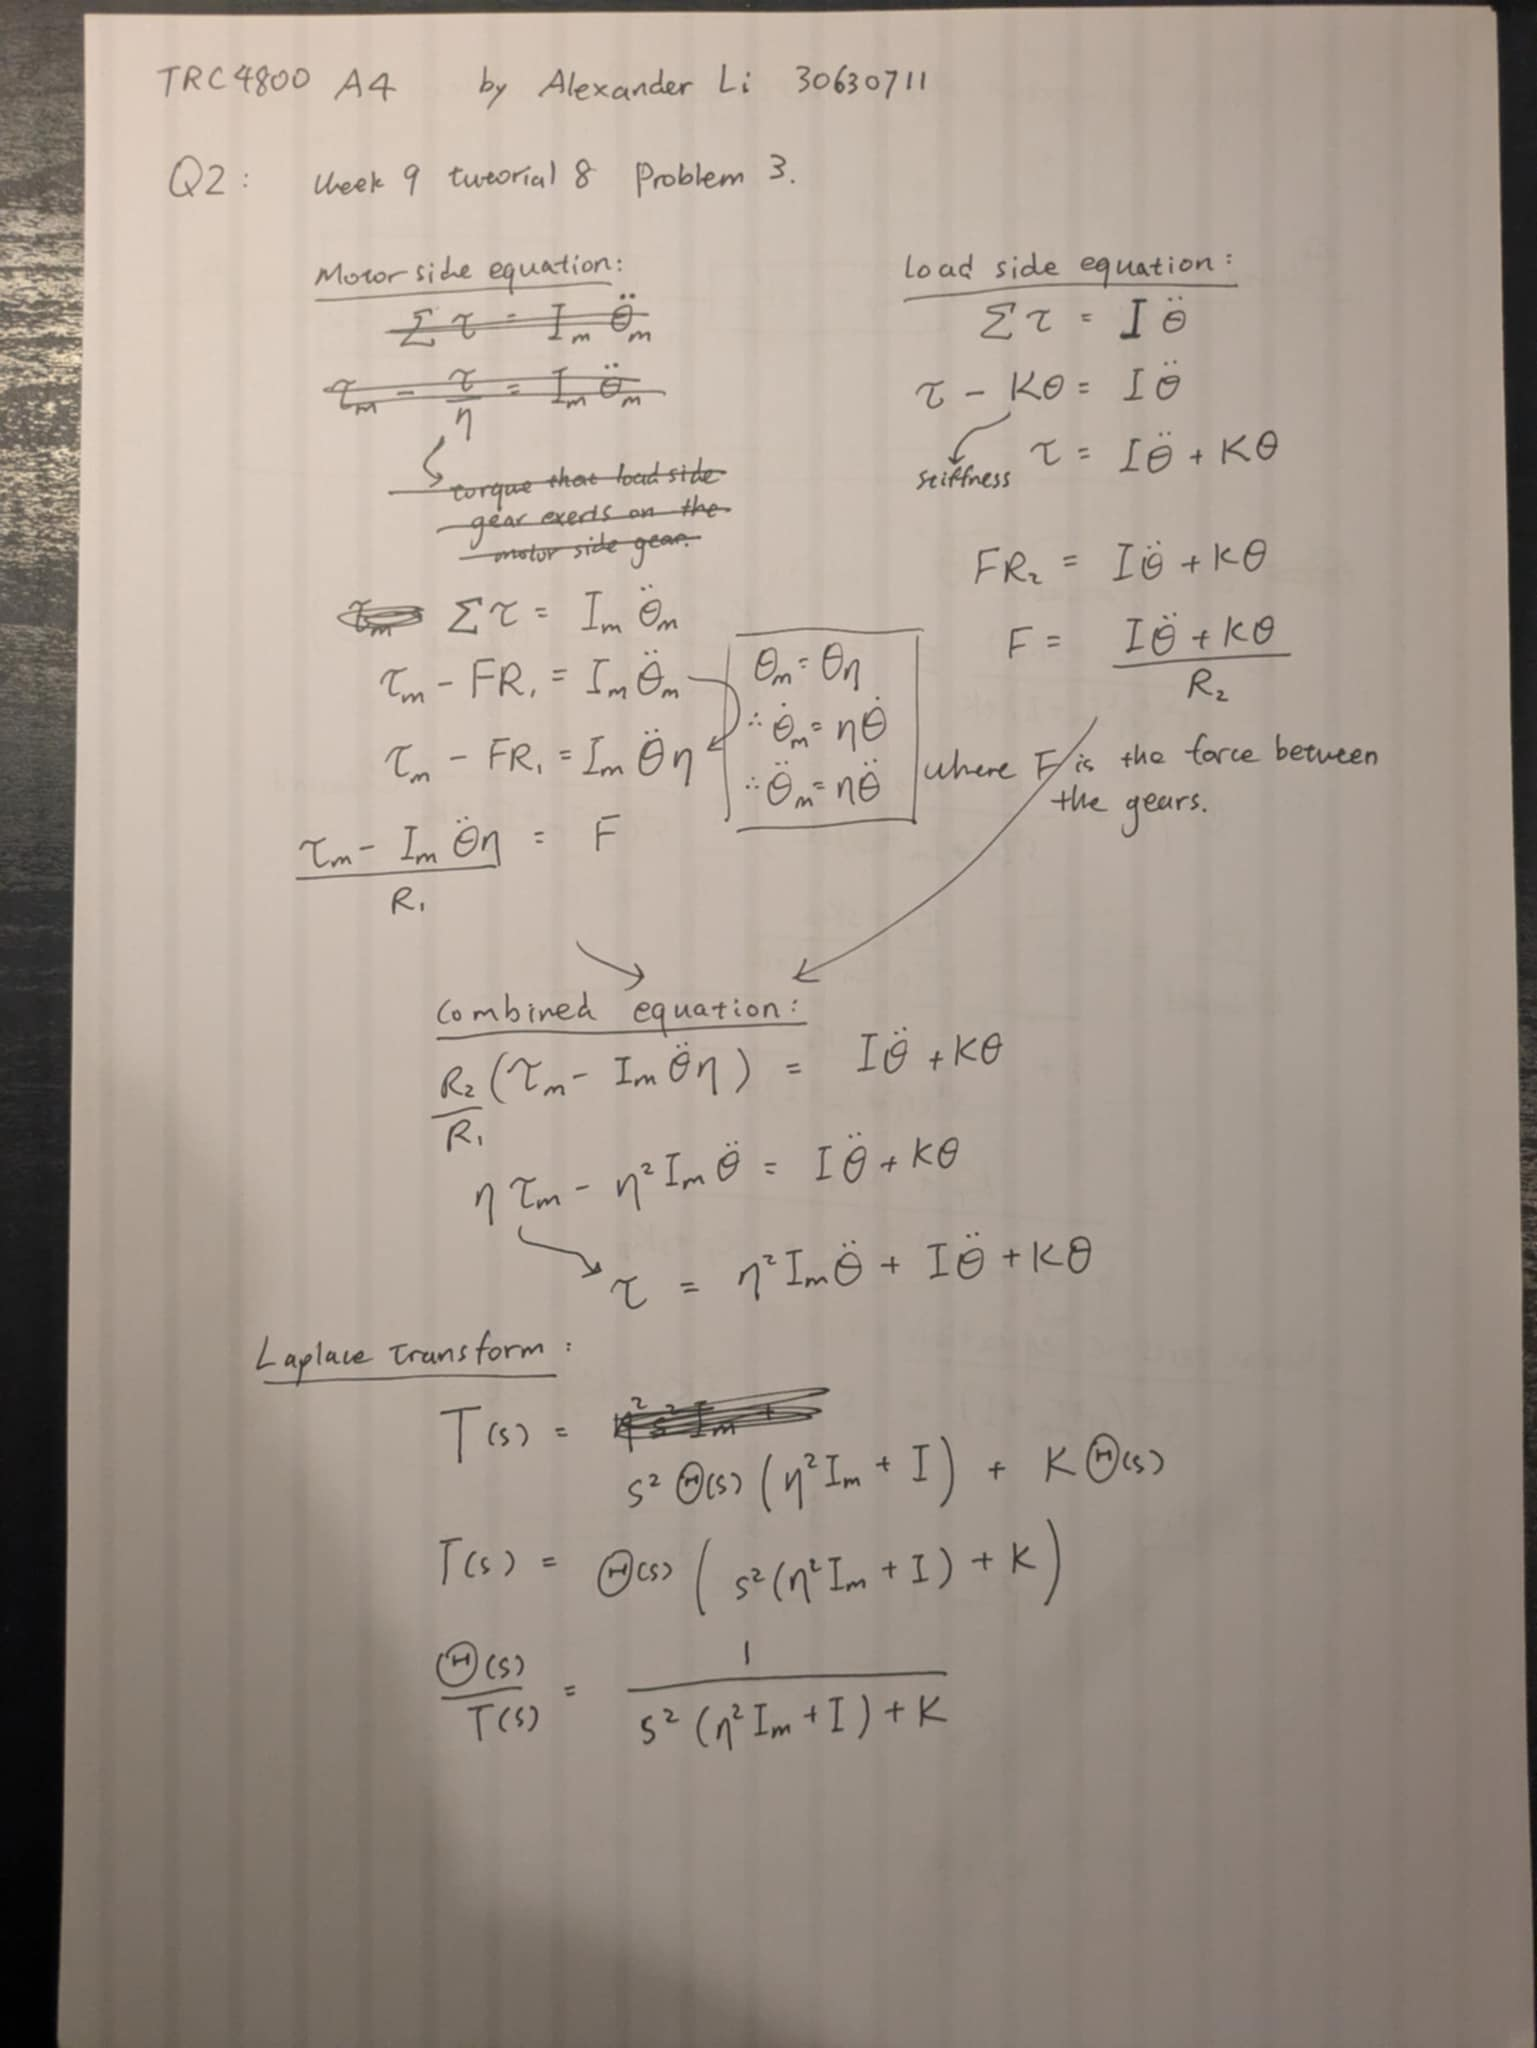 TRC4800 A4 by Alexander Li 30630711
Q2: Week 9 tutorial 8 Problem 3.
Motor side equation:
Σ τ = I_m θ̈_m
τ_m - τ/η = I_m θ̈_m
torque that load side
gear exerts on the
motor side gear.
τ_m Σ τ = I_m θ̈_m
τ_m - FR₁ = I_m θ̈_m
τ_m - FR₁ = I_m θ̈η
(τ_m - I_m θ̈η)/R₁ = F
θ_m = θη
∴ θ̇_m = ηθ̇
∴ θ̈_m = ηθ̈
Load side equation:
Σ τ = I θ̈
τ - Kθ = I θ̈
stiffness
τ = Iθ̈ + Kθ
FR₂ = Iθ̈ + Kθ
F = (Iθ̈ + Kθ)/R₂
where F is the force between
the gears.
Combined equation:
R₂/R₁ (τ_m - I_m θ̈η) = Iθ̈ + Kθ
η τ_m - η² I_m θ̈ = Iθ̈ + Kθ
τ = η² I_m θ̈ + Iθ̈ + Kθ
Laplace Transform:
T(s) = η² s² I_m +
s² Θ(s) (η² I_m + I) + K Θ(s)
T(s) = Θ(s) ( s² (η² I_m + I) + K )
Θ(s)/T(s) = 1/(s² (η² I_m + I) + K)